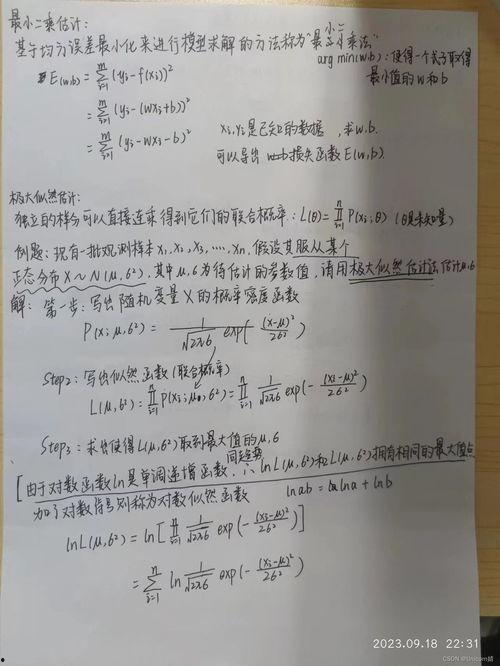 最小二乘估计:
基于均方误差最小化来进行模型求解的方法称为"最小二乘法"
arg min(w,b): 使得一个式子取得
最小值的w和b
E(w,b) = Σ_{i=1}^{m} (y_i - f(x_i))²
= Σ_{i=1}^{m} (y_i - (wx_i + b))²
= Σ_{i=1}^{m} (y_i - wx_i - b)²
x_i, y_i是已知的数据, 求w,b.
可以导出 损失函数E(w,b).
极大似然估计:
独立的样本可以直接连乘得到它们的联合概率: L(θ) = ∏_{i=1}^{n} P(x_i;θ) (θ是未知量)
例题: 现有一批观测样本x₁,x₂,x₃,....,xₙ, 假设其服从某个
正态分布X~N(μ,σ²), 其中μ,σ为待估计的参数值, 请用极大似然估计法估计μ,σ
解: 第一步: 写出随机变量X的概率密度函数
P(x;μ,σ²) = 1/(√2π σ) exp(-(x-μ)²/2σ²)
Step2: 写出似然函数(联合概率)
L(μ,σ²) = ∏_{i=1}^{n} P(x_i;μ,σ²) = ∏_{i=1}^{n} 1/(√2π σ) exp(-(x_i-μ)²/2σ²)
Step3: 求出使得L(μ,σ²)取到最大值的μ,σ
[由于对数函数ln是单调递增函数, ∴ lnL(μ,σ²)和L(μ,σ²)拥有相同的最大值点
加了对数符号则称为对数似然函数
ln ab = ln a + ln b
lnL(μ,σ²) = ln[∏_{i=1}^{n} 1/(√2π σ) exp(-(x_i-μ)²/2σ²)]
= Σ_{i=1}^{n} ln 1/(√2π σ) exp(-(x_i-μ)²/2σ²)
2023.09.18 22:31